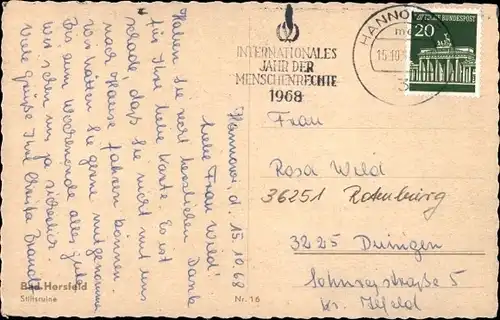 Hannover, d. 15.10.68
Liebe Frau Wild!
Haben Sie recht herzlichen Dank
für Ihre liebe Karte. Es ist
schade, daß Sie nicht mit uns
nach Hause fahren können.
Wir hätten Sie gerne mitgenommen
Bis zum Wochenende alles gute
wir sehen uns ja sicherlich.
Viele Grüße Ihre Christa Brandt
Bad Hersfeld
Stiftsruine
Nr. 16
INTERNATIONALES
JAHR DER
MENSCHENRECHTE
1968
HANNOVER
15.10.
3
DEUTSCHE BUNDESPOST
20
Frau
Rosa Wild
36251 Rotenburg
3225 Duingen
5
Kr. Alfeld